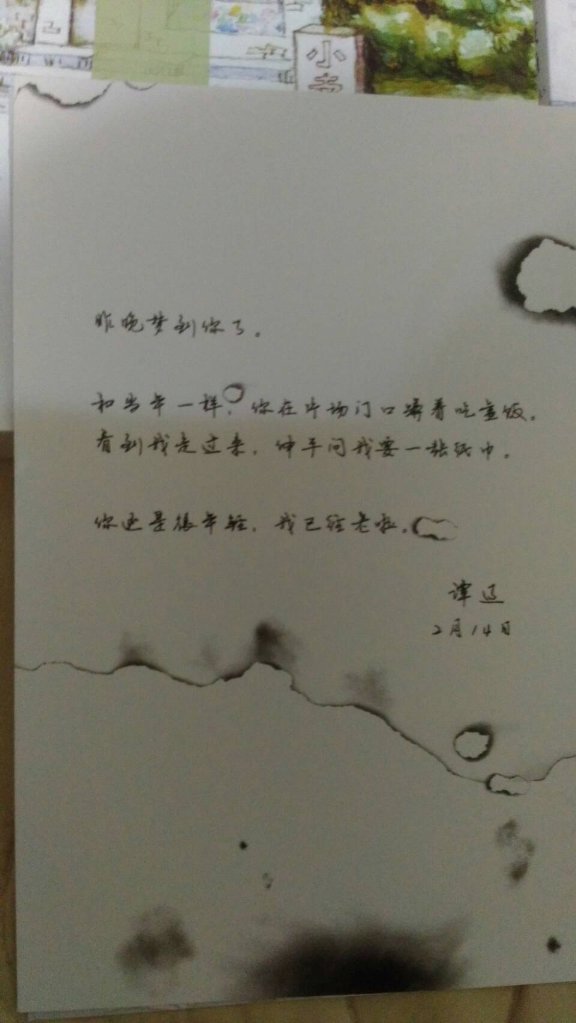 小
昨晚梦到你了。
和当年一样，你在片场门口蹲着吃盒饭。
看到我走过来，伸手问我要一张纸巾。
你还是很年轻，我已经老啦。
谭
2月14日